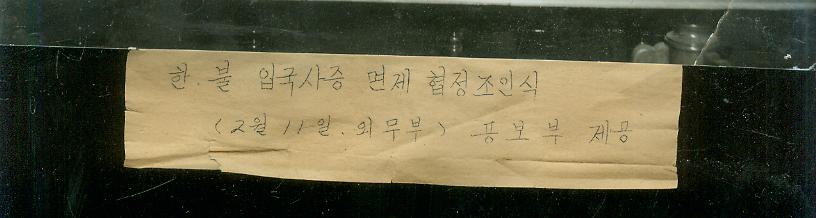 한.불 입국사증 면제 협정조인식
(2월 11일. 외무부) 공보부 제공